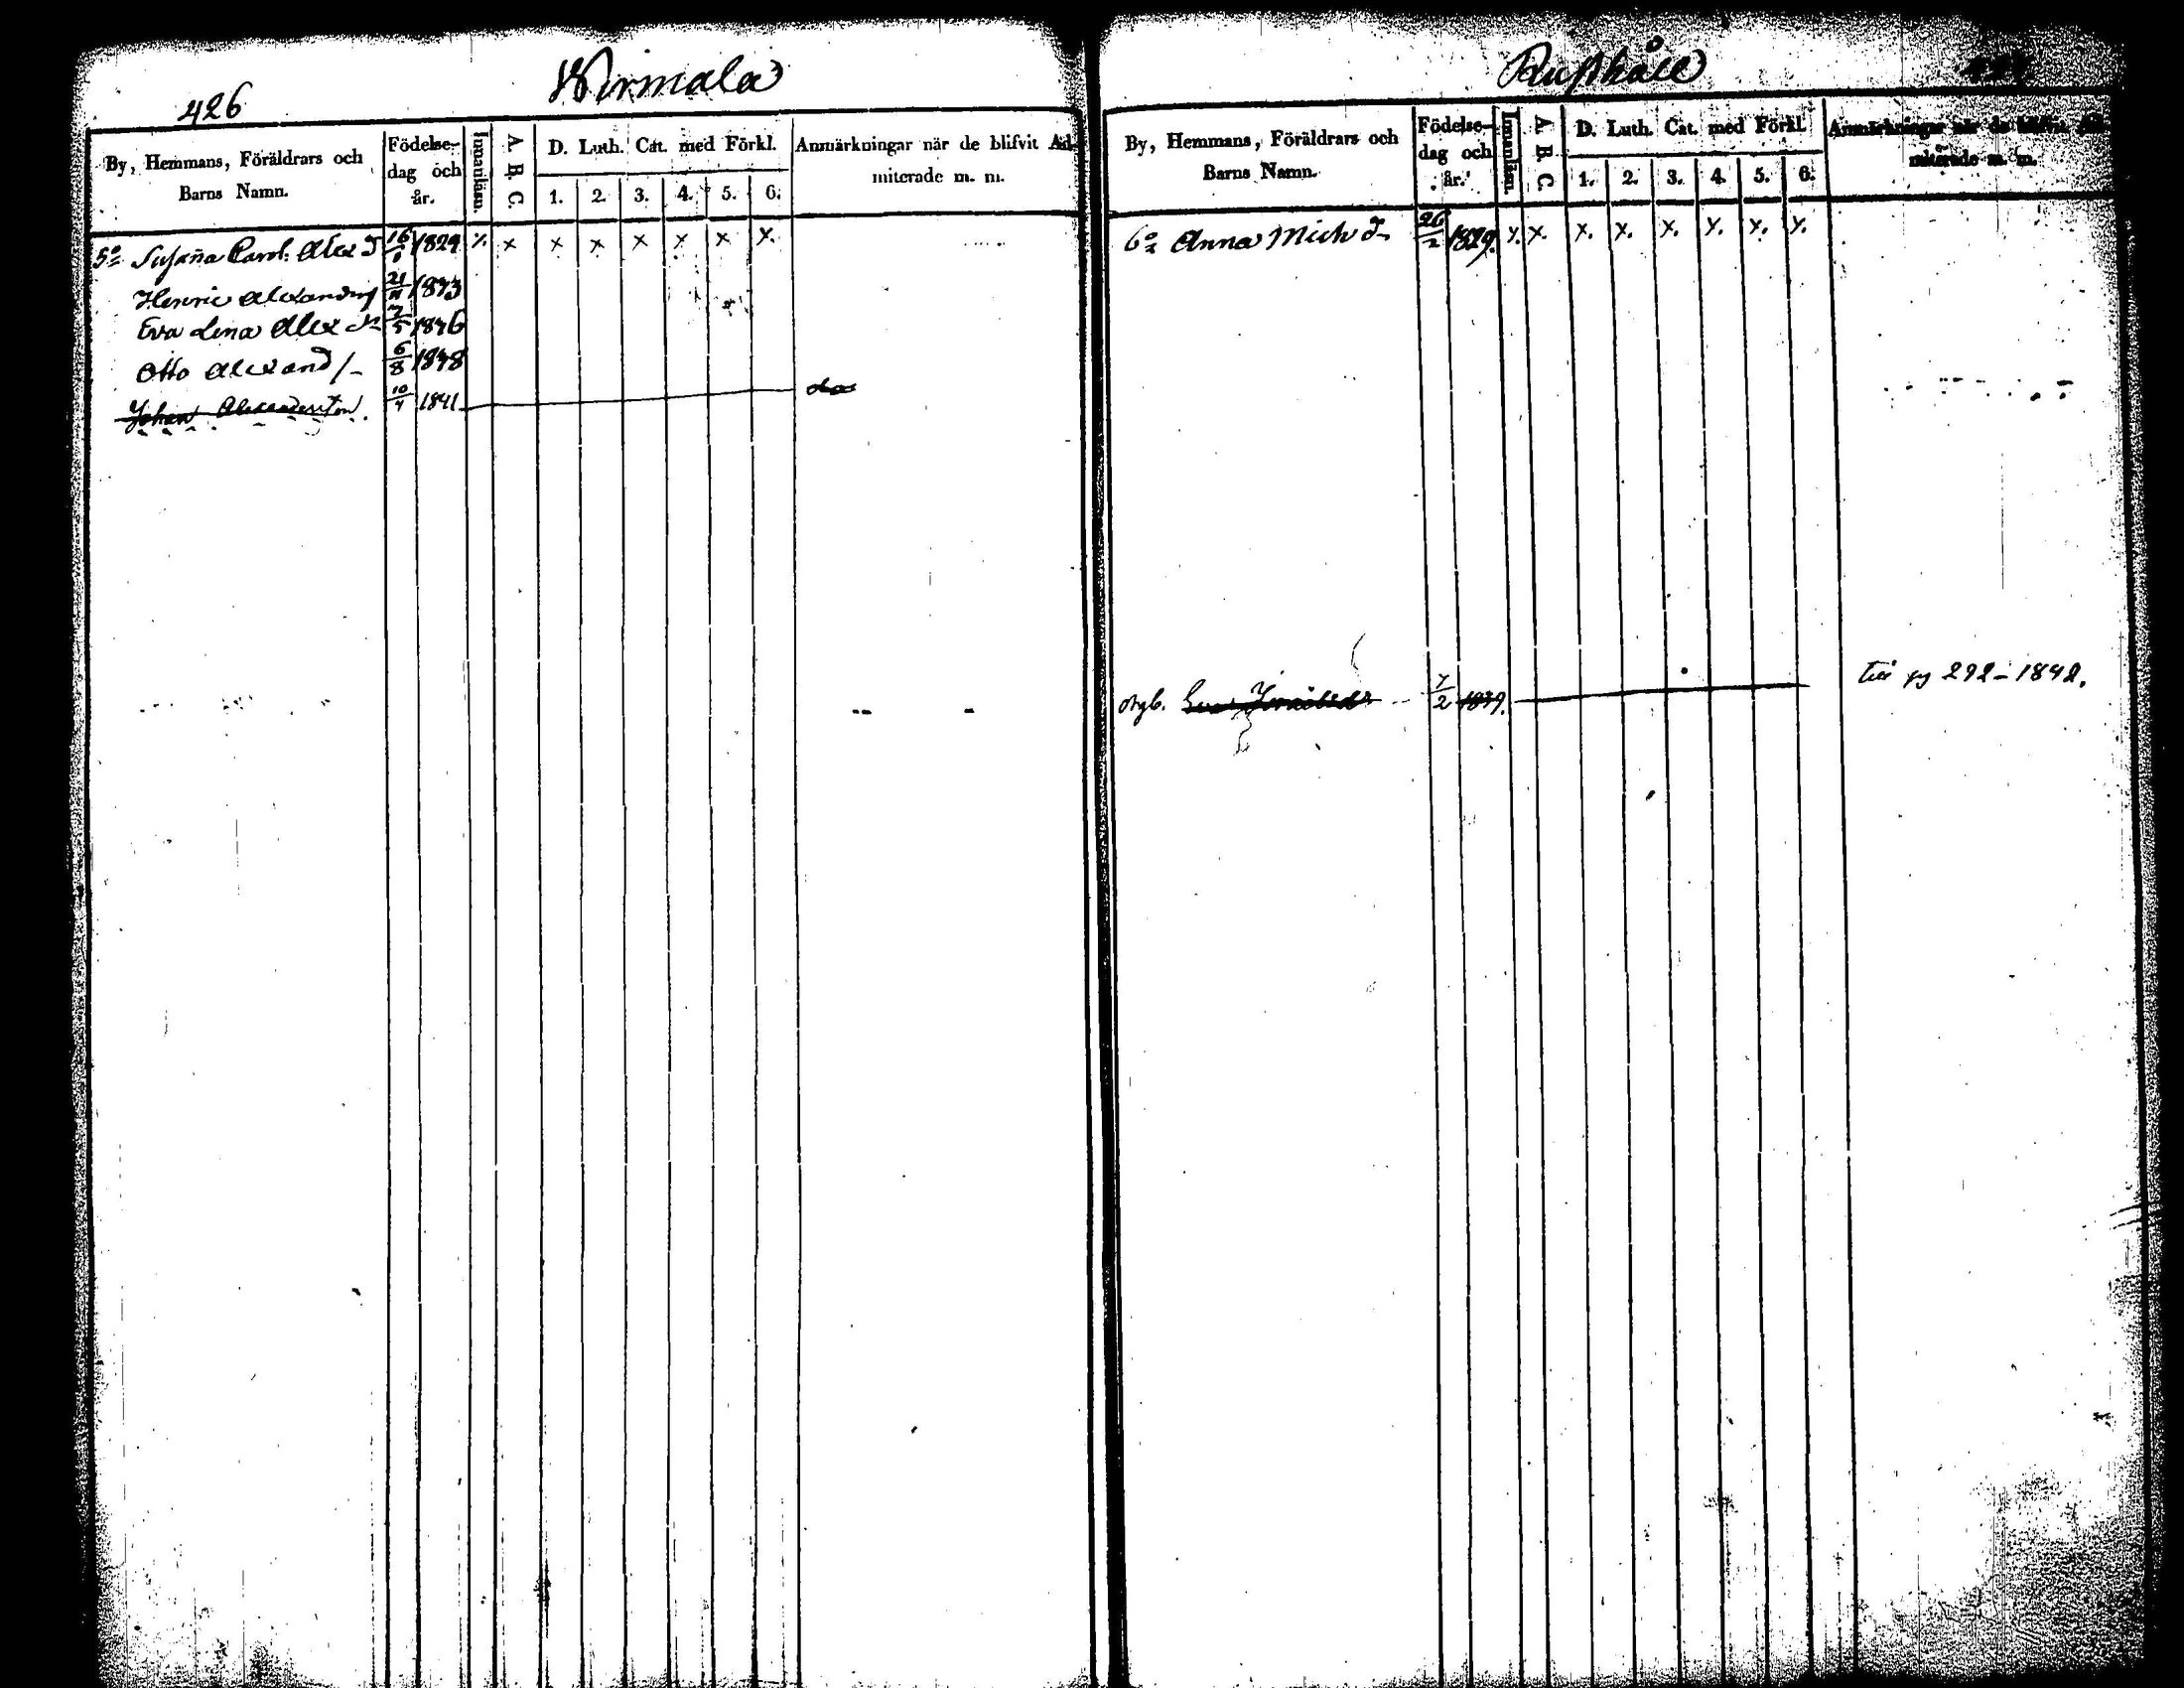 426
Wirmala
By, Hemmans, Föräldrars och
Barns Namn.
Födelse-
dag och
år.
Innanläsn.
A B C.
D. Luth. Cat. med Förkl.
1. 2. 3. 4. 5. 6.
Anmärkningar när de blifvit Ad-
miterade m. m.
5o Susaña Carol. Alex D 16 1829 x x x x x x x x
Henric Alexanders 21/11 1833
Eva Lena Alex dr 7/5 1836
Otto Alexand s 6/8 1838
Johan Alexandersson 10/4 1841
Rusthåll
By, Hemmans, Föräldrars och
Barns Namn.
Födelse-
dag och
år.
Innanläsn.
A B C
D. Luth. Cat. med Förkl.
1. 2. 3. 4. 5. 6.
Anmärkningar när de blifvit Ad-
miterade m. m.
6o Anna Mich D 26/2 1829. x. x. x. x. x. x. x. x.
7/2 1839.
till pg 292 - 1842.